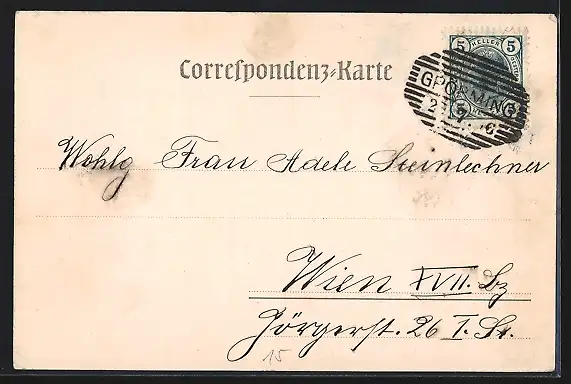 5 HELLER 5
Correspondenz-Karte
GPÖRMING
2
Wohlg Frau Adele Steinlechner
Wien XVII. Bz
Jörgerst. 26 I. St.
15